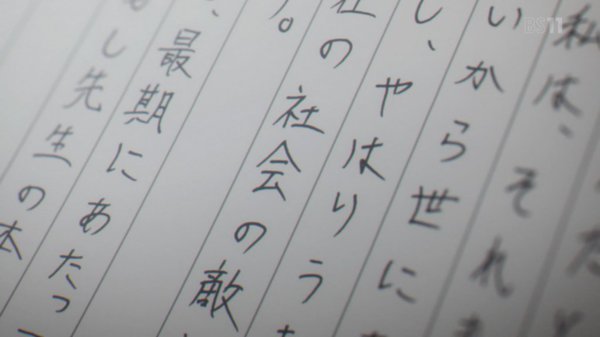 BS11
私は、それ
いからら世に
し、やはりう
の社会の敵
。
、最期にあたっ
し先生の本